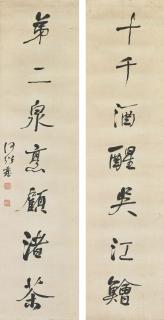 十千酒醒吳江鱠
第二泉烹顧渚茶
何紹基